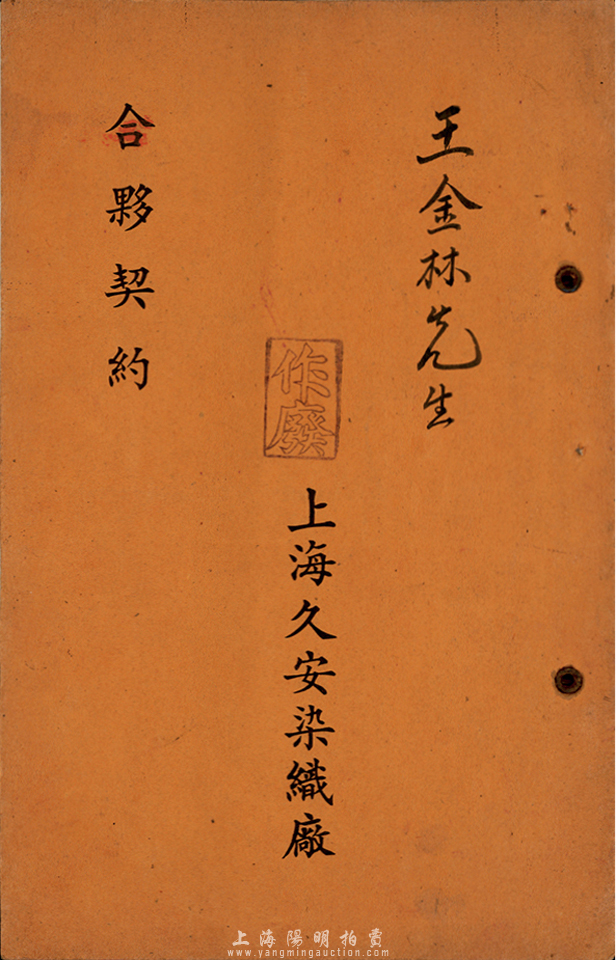 王金林先生
作廢
上海久安染織廠
合夥契約
上海陽明拍賣
www.yangmingauction.com